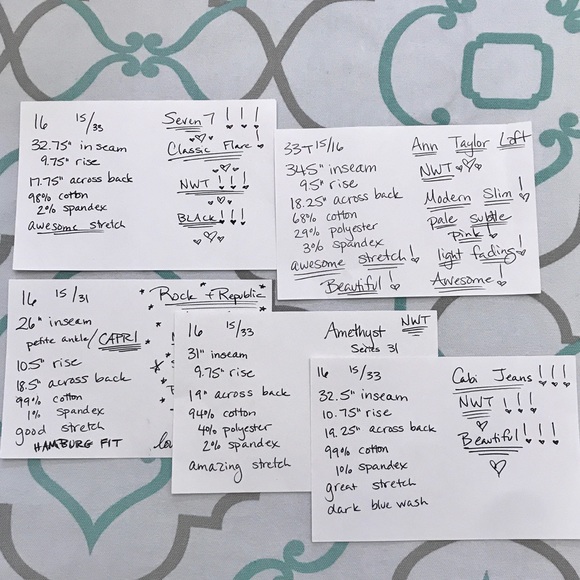 16 15/33 Seven7 !!!
32.75" inseam Classic Flare!
9.75" rise
17.75" across back NWT !!!
98% cotton
2% spandex BLACK!!!
awesome stretch
33T 15/16 Ann Taylor Loft
34.5" inseam NWT
9.5" rise
18.25" across back Modern Slim!
68% cotton pale subtle
29% polyester pink!
3% spandex light fading!
awesome stretch!
Beautiful! Awesome!
16 15/31 Rock & Republic
26" inseam
petite ankle/CAPRI
10.5" rise
18.5" across back
99% cotton
1% spandex
good stretch
HAMBURG FIT
16 15/33 Amethyst NWT
Series 31
31" inseam
9.75" rise
19" across back
94% cotton
4% polyester
2% spandex
amazing stretch
16 15/33 Cabi Jeans!!!
32.5" inseam NWT !!!
10.75" rise
19.25" across back Beautiful!!!
99% cotton
1% spandex
great stretch
dark blue wash